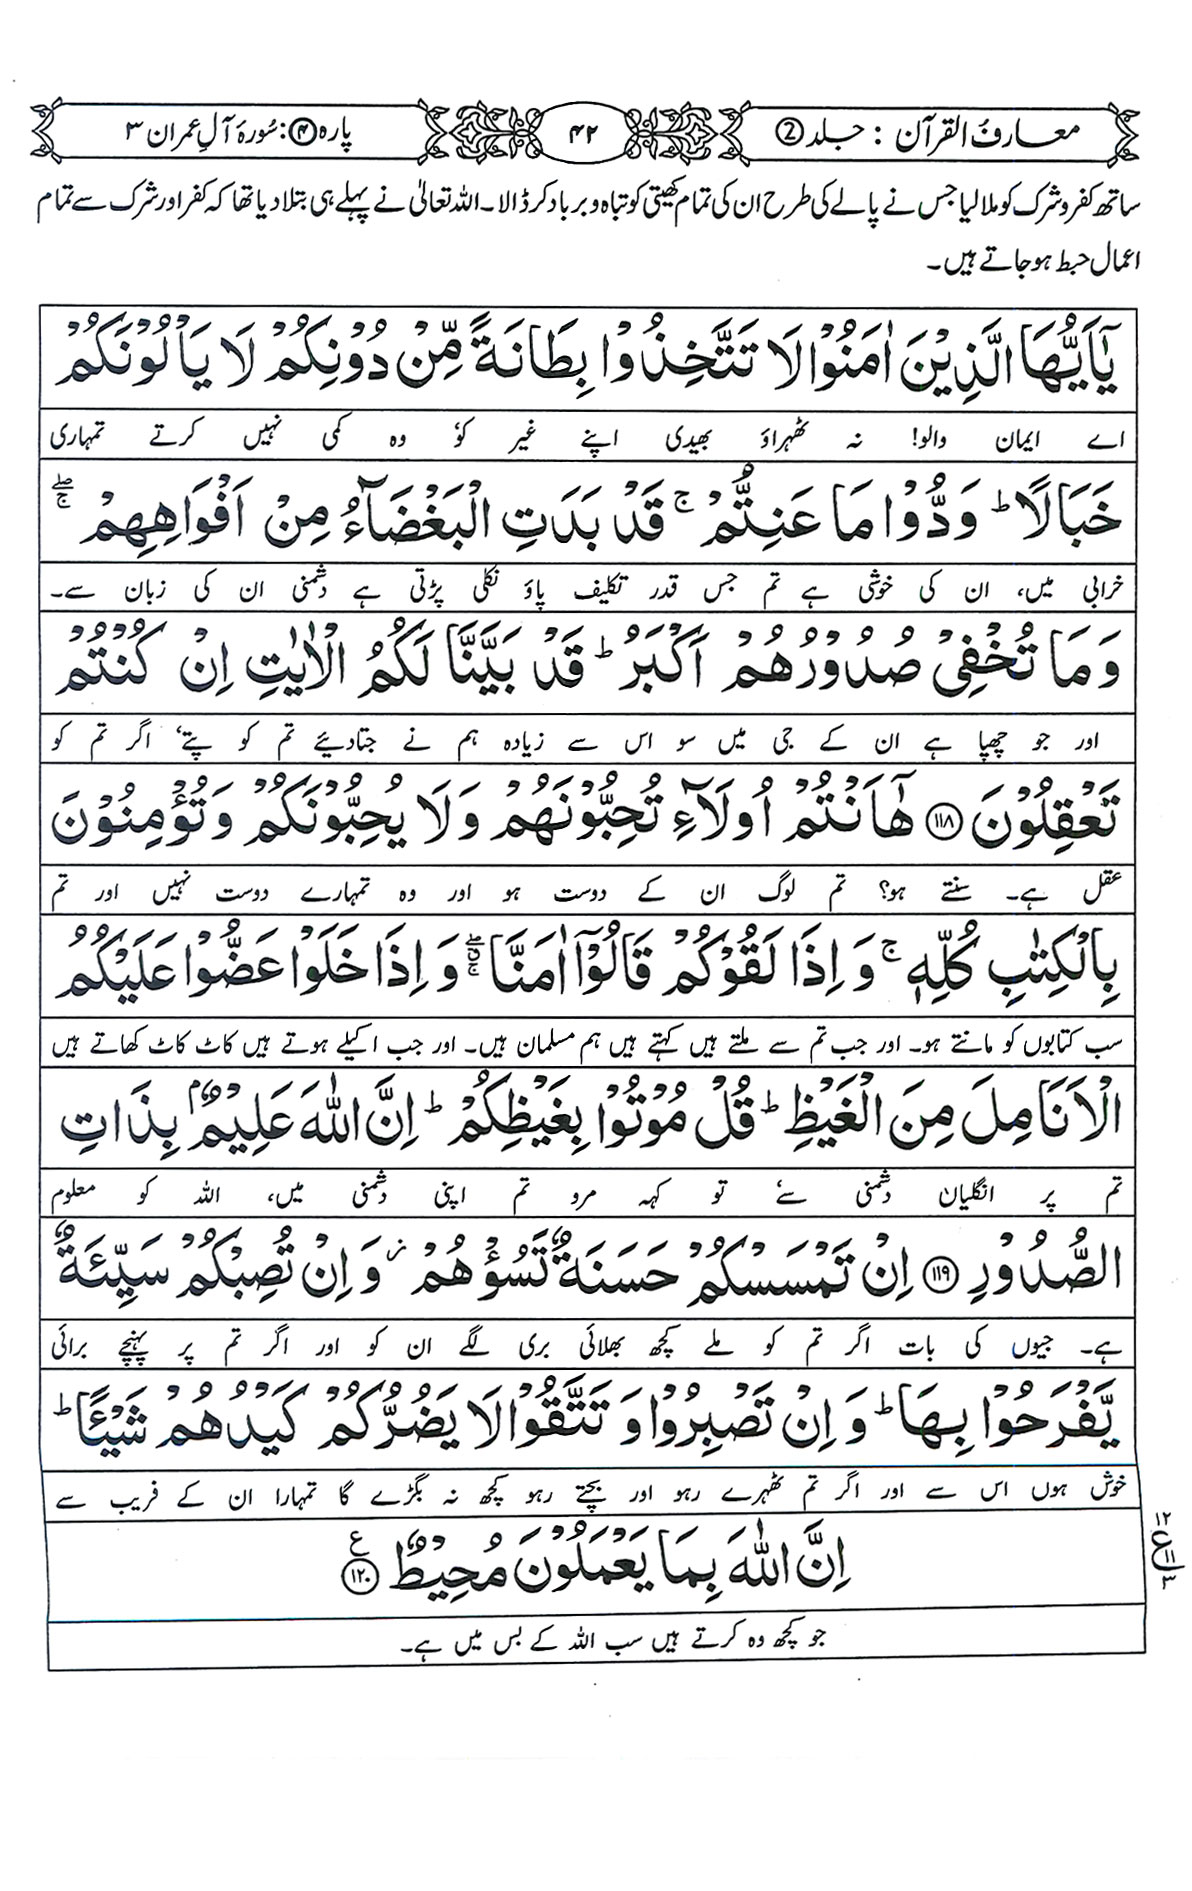 معارف القرآن : جلد ②
۴۲
پارہ ④ : سُورۂ آلِ عمران ۳
ساتھ کفر و شرک کو ملا لیا جس نے پالے کی طرح ان کی تمام کھیتی کو تباہ و برباد کر ڈالا۔ اللہ تعالیٰ نے پہلے ہی بتلا دیا تھا کہ کفر اور شرک سے تمام
اعمال حبط ہو جاتے ہیں۔
يٰٓاَيُّهَا الَّذِيْنَ اٰمَنُوْا لَا تَتَّخِذُوْا بِطَانَةً مِّنْ دُوْنِكُمْ لَا يَاْلُوْنَكُمْ
اے ایمان والو! نہ ٹھہراؤ بھیدی اپنے غیر کو‘ وہ کمی نہیں کرتے تمہاری
خَبَالًا ؕ وَدُّوْا مَا عَنِتُّمْ ۚ قَدْ بَدَتِ الْبَغْضَآءُ مِنْ اَفْوَاهِهِمْ ۖۚ
خرابی میں، ان کی خوشی ہے تم جس قدر تکلیف پاؤ نکلی پڑتی ہے دشمنی ان کی زبان سے۔
وَمَا تُخْفِيْ صُدُوْرُهُمْ اَكْبَرُ ؕ قَدْ بَيَّنَّا لَكُمُ الْاٰيٰتِ اِنْ كُنْتُمْ
اور جو چھپا ہے ان کے جی میں سو اس سے زیادہ ہم نے جتا دیئے تم کو پتے‘ اگر تم کو
تَعْقِلُوْنَ ۱۱۸ هٰٓاَنْتُمْ اُولَآءِ تُحِبُّوْنَهُمْ وَلَا يُحِبُّوْنَكُمْ وَتُؤْمِنُوْنَ
عقل ہے۔ سنتے ہو؟ تم لوگ ان کے دوست ہو اور وہ تمہارے دوست نہیں اور تم
بِالْكِتٰبِ كُلِّهٖ ۚ وَاِذَا لَقُوْكُمْ قَالُوْٓا اٰمَنَّا ۖۚ وَاِذَا خَلَوْا عَضُّوْا عَلَيْكُمُ
سب کتابوں کو مانتے ہو۔ اور جب تم سے ملتے ہیں کہتے ہیں ہم مسلمان ہیں۔ اور جب اکیلے ہوتے ہیں کاٹ کاٹ کھاتے ہیں
الْاَنَامِلَ مِنَ الْغَيْظِ ؕ قُلْ مُوْتُوْا بِغَيْظِكُمْ ؕ اِنَّ اللّٰهَ عَلِيْمٌۢ بِذَاتِ
تم پر انگلیاں دشمنی سے‘ تو کہہ مرو تم اپنی دشمنی میں، اللہ کو معلوم
الصُّدُوْرِ ۱۱۹ اِنْ تَمْسَسْكُمْ حَسَنَةٌ تَسُؤْهُمْ ز وَاِنْ تُصِبْكُمْ سَيِّئَةٌ
ہے۔ جیوں کی بات اگر تم کو ملے کچھ بھلائی بری لگے ان کو اور اگر تم پر پہنچے برائی
يَّفْرَحُوْا بِهَا ؕ وَاِنْ تَصْبِرُوْا وَتَتَّقُوْا لَا يَضُرُّكُمْ كَيْدُهُمْ شَيْئًا ؕ
خوش ہوں اس سے اور اگر تم ٹھہرے رہو اور بچتے رہو کچھ نہ بگڑے گا تمہارا ان کے فریب سے
اِنَّ اللّٰهَ بِمَا يَعْمَلُوْنَ مُحِيْطٌ ۱۲۰ ع
۱۲ ع ۱۱ ۳
جو کچھ وہ کرتے ہیں سب اللہ کے بس میں ہے۔